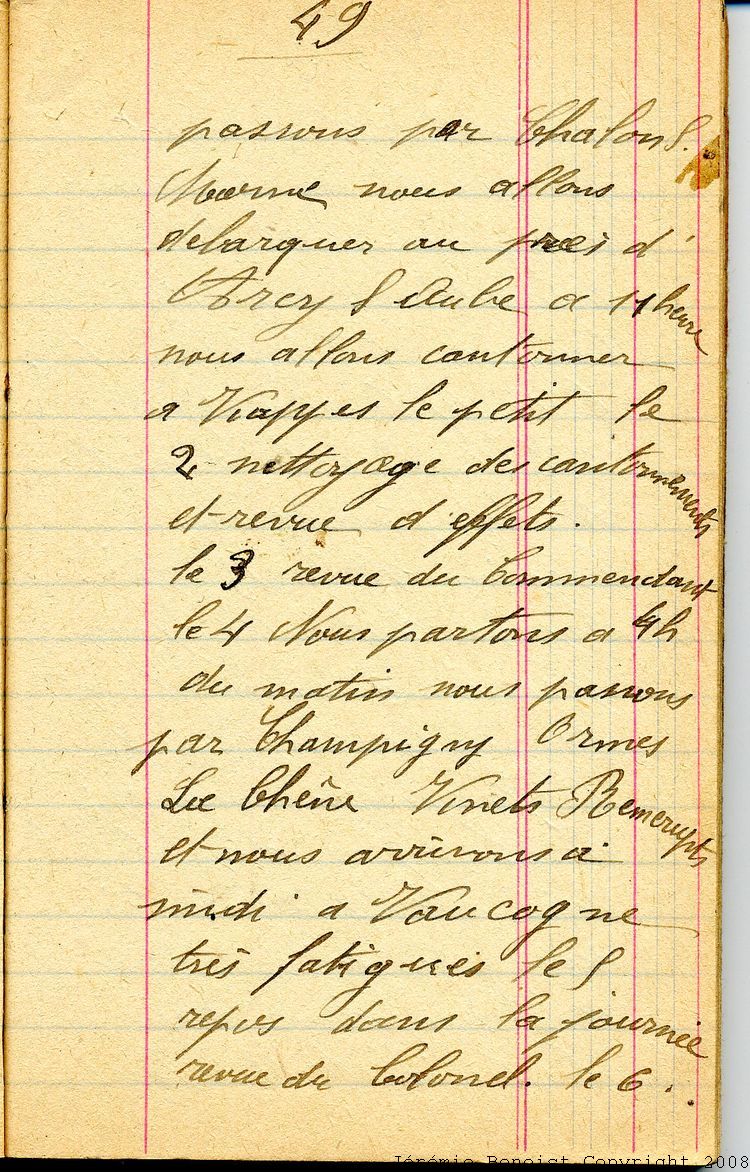 49
passons par Chalon S.
Marne nous allons
debarquer au près d'
Arcy S Aube a 11 heure
nous allons cantonner
a Viappes le petit le
2 nettoyage des cantonnements
et revue d effets.
le 3 revue du Commendant
le 4 Nous partons a 4h
du matin nous passons
par Champigny Ormes
Le Chêne Vinets Ramerupts
et nous arrivons a
midi a Vaucogne
très fatigués le 5
repos dans la journée
revue du Colonel. le 6.
Jérémie Benoist Copyright 2008